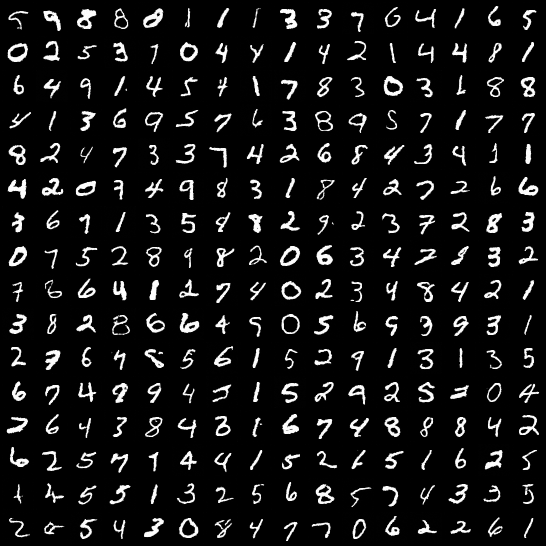 5 9 8 8 0 1 1 1 3 3 7 6 4 1 6 5
0 2 5 3 7 0 4 4 1 4 2 1 4 4 8 1
6 4 9 1 4 5 4 1 7 8 3 0 3 1 8 8
4 1 3 6 9 5 7 6 3 8 9 5 7 1 7 7
8 2 4 7 3 3 7 4 2 6 8 4 3 4 1 1
4 2 0 7 4 9 8 3 1 8 4 2 7 2 6 6
3 6 7 1 3 5 9 8 2 9 2 3 7 2 8 3
0 7 5 2 8 9 8 2 0 6 3 4 7 8 3 2
7 8 6 4 1 2 7 4 0 2 3 4 8 4 2 1
3 8 2 8 6 6 4 9 0 5 6 9 3 9 3 1
2 7 6 4 8 5 6 1 5 2 9 1 3 1 3 5
6 7 4 9 9 4 5 1 5 2 9 2 5 0 4
2 6 4 3 8 4 3 1 6 7 4 8 8 8 4 2
6 2 5 7 1 4 4 1 5 2 6 5 1 6 2 5
1 4 5 5 1 3 2 5 6 8 5 7 4 3 3 5
2 5 4 3 0 8 4 7 7 0 6 2 2 6 1